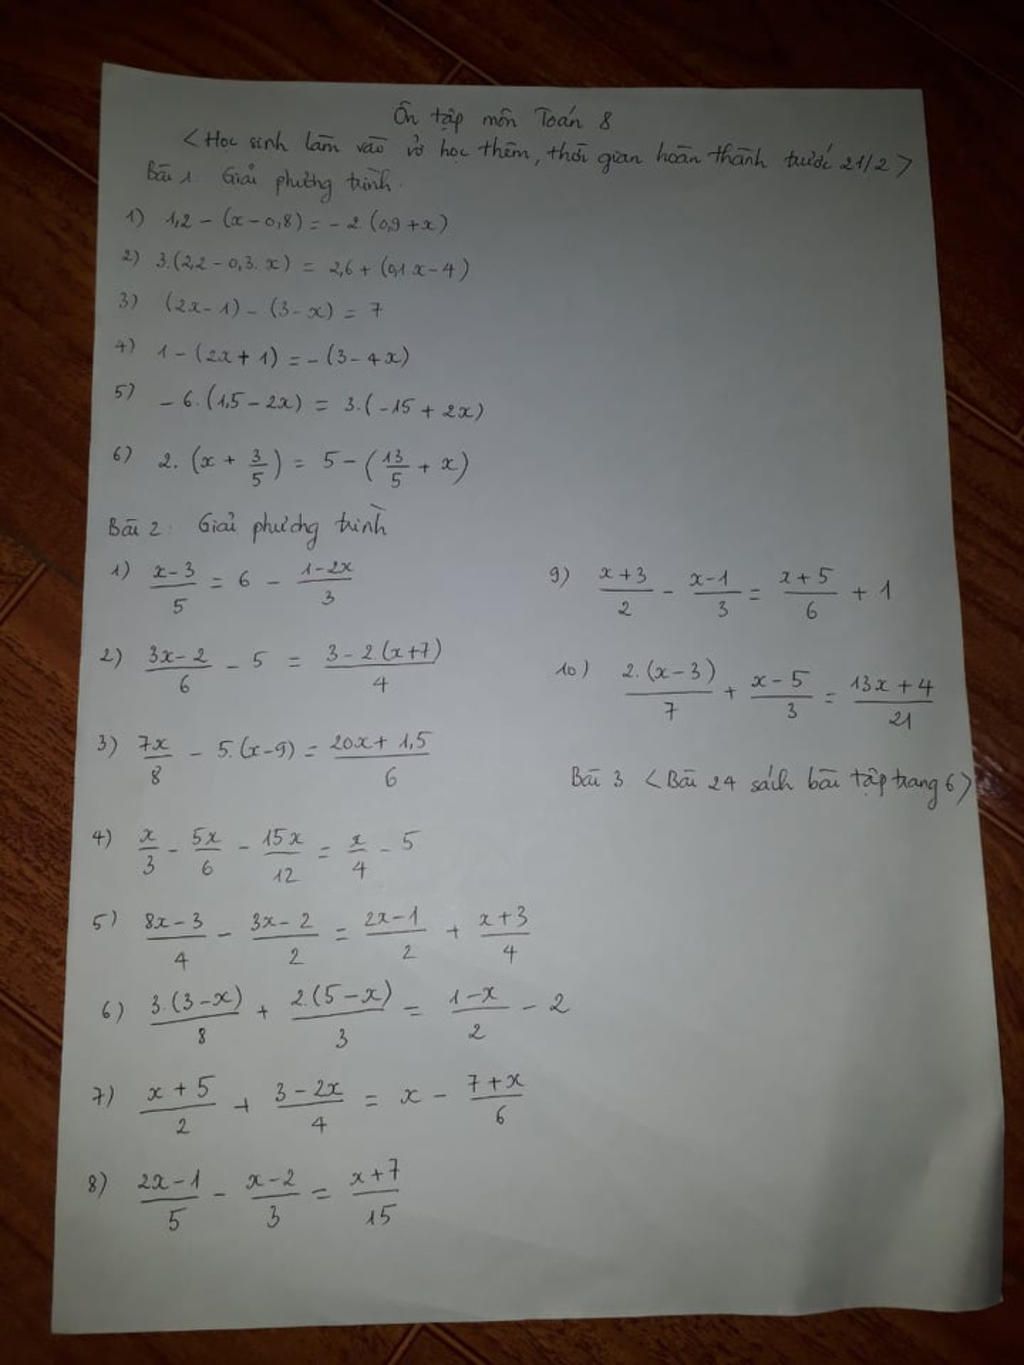 Ôn tập môn Toán 8
<Học sinh làm vào vở học thêm, thời gian hoàn thành trước 21/2>
Bài 1. Giải phương trình.
1) 1,2 - (x - 0,8) = - 2 (0,9 + x)
2) 3.(2,2 - 0,3.x) = 2,6 + (0,1x - 4)
3) (2x - 1) - (3 - x) = 7
4) 1 - (2x + 1) = - (3 - 4x)
5) - 6.(1,5 - 2x) = 3.(-15 + 2x)
6) 2.(x + 3/5) = 5 - (13/5 + x)
Bài 2: Giải phương trình
1) (x-3)/5 = 6 - (1-2x)/3
2) (3x-2)/6 - 5 = (3-2.(x+7))/4
3) 7x/8 - 5.(x-9) = (20x + 1,5)/6
4) x/3 - 5x/6 - 15x/12 = x/4 - 5
5) (8x-3)/4 - (3x-2)/2 = (2x-1)/2 + (x+3)/4
6) 3.(3-x)/8 + 2.(5-x)/3 = (1-x)/2 - 2
7) (x+5)/2 + (3-2x)/4 = x - (7+x)/6
8) (2x-1)/5 - (x-2)/3 = (x+7)/15
9) (x+3)/2 - (x-1)/3 = (x+5)/6 + 1
10) 2.(x-3)/7 + (x-5)/3 = (13x+4)/21
Bài 3 <Bài 24 sách bài tập trang 6>